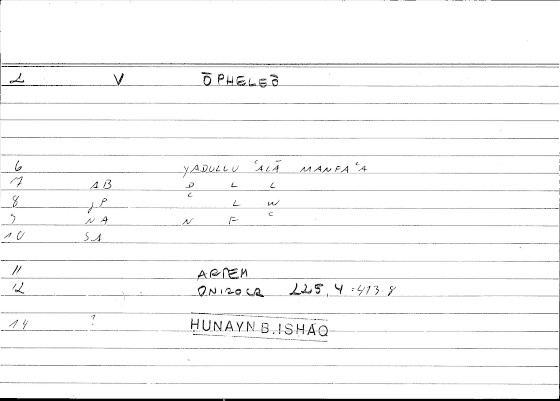 2 V ŌPHELEŌ
6 YADULLU ʿALĀ MANFAʿA
7 AB D L L
8 JP ʿ L W
9 NA N F ʿ
10 SA
11 ARTEM
12 ONIROCR 225,4 = 413.8
14 ? HUNAYN B. ISHĀQ